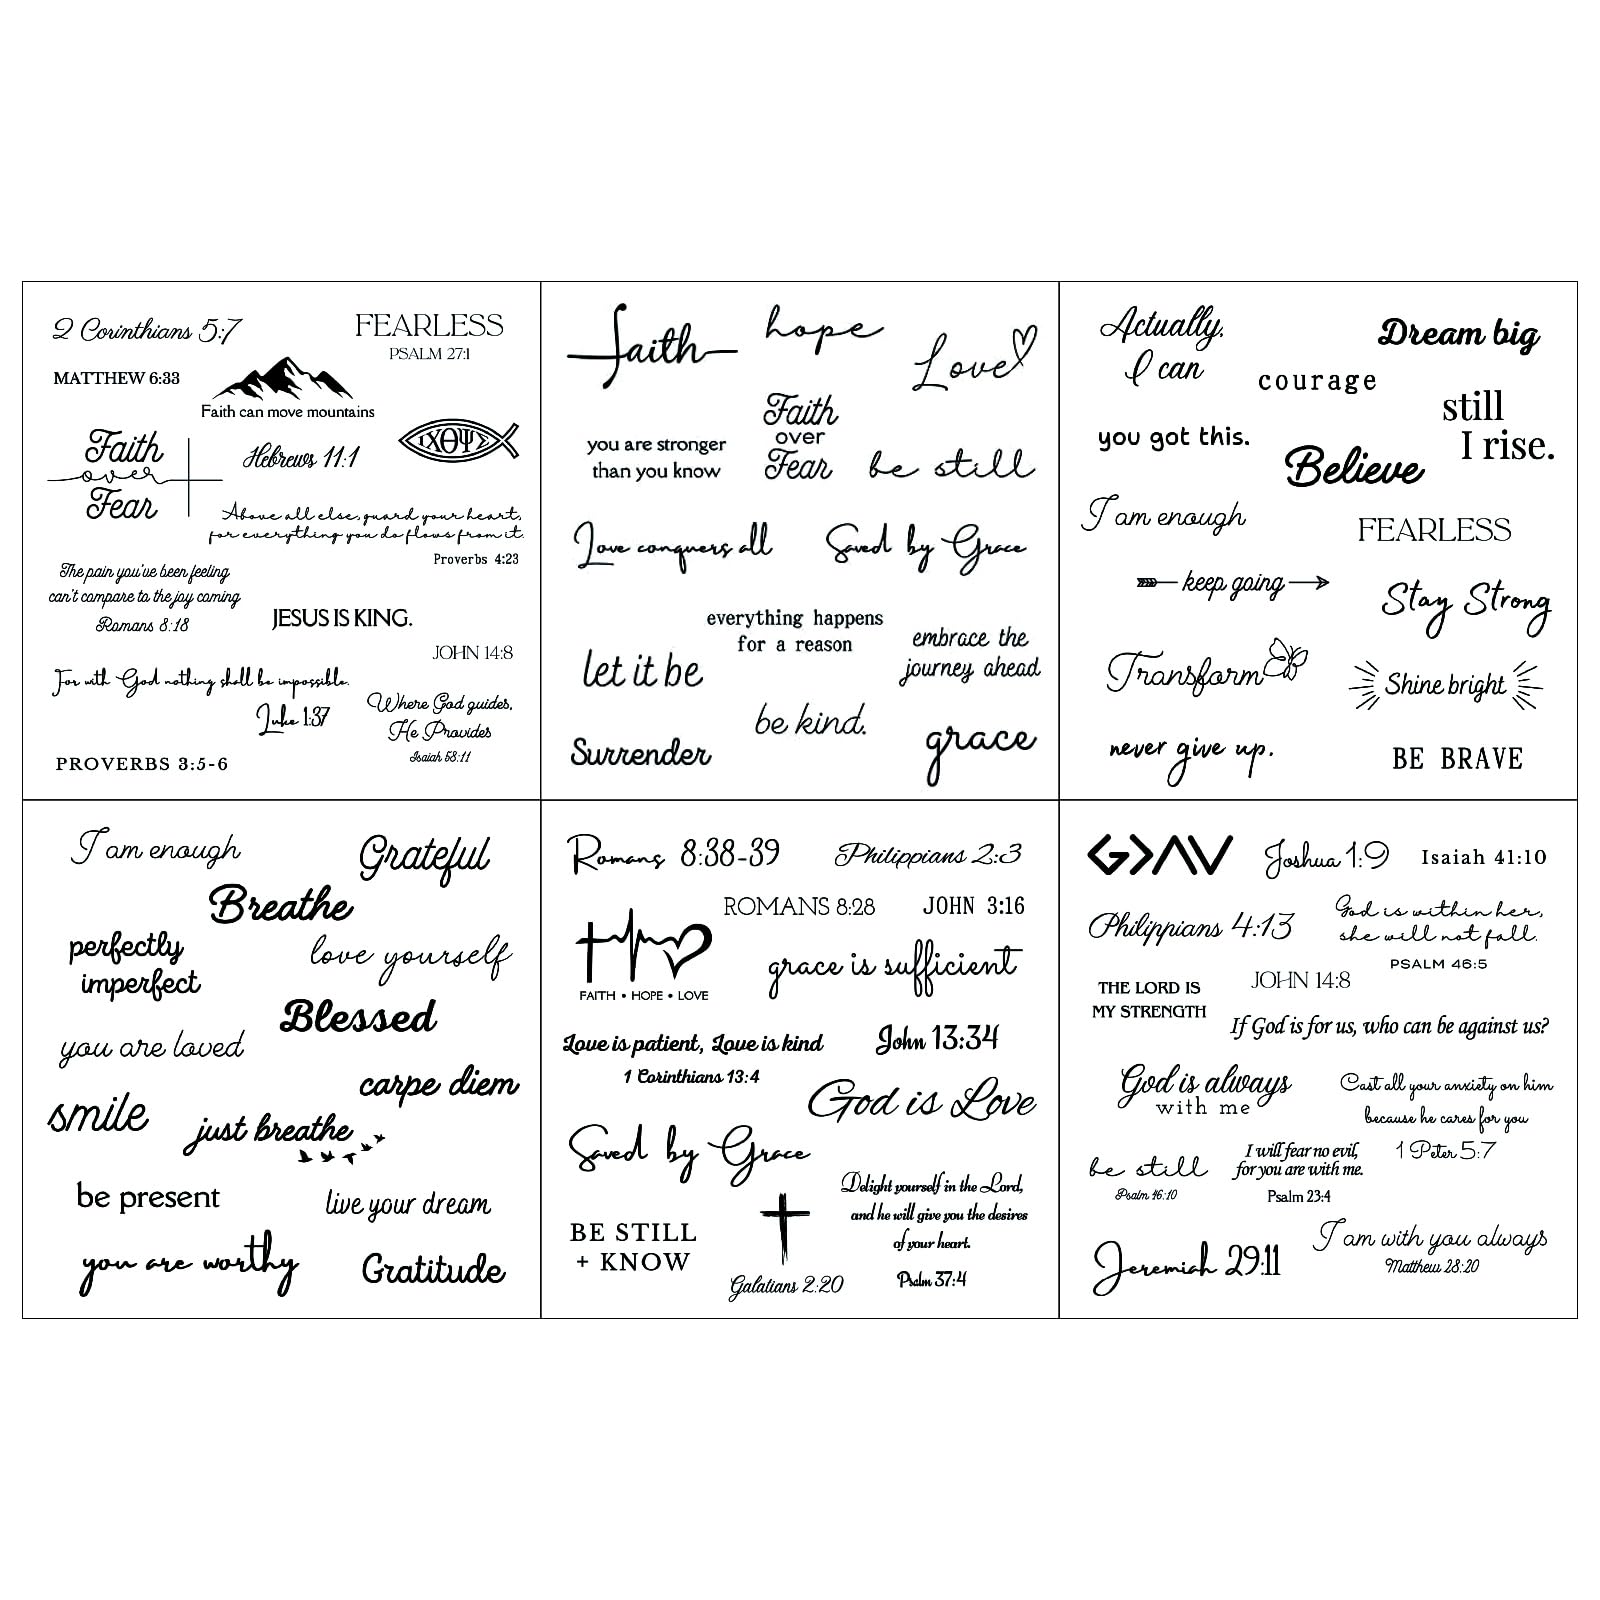 2 Corinthians 5:7
FEARLESS
PSALM 27:1
MATTHEW 6:33
Faith can move mountains
Faith
over
Fear
Hebrews 11:1
ΙΧΘΨΣ
Above all else, guard your heart,
for everything you do flows from it.
Proverbs 4:23
The pain you've been feeling
can't compare to the joy coming
Romans 8:18
JESUS IS KING.
JOHN 14:8
For with God nothing shall be impossible.
Luke 1:37
Where God guides,
He Provides
Isaiah 58:11
PROVERBS 3:5-6
faith
hope
Love
you are stronger
than you know
Faith
over
Fear
be still
Love conquers all
Saved by Grace
everything happens
for a reason
let it be
embrace the
journey ahead
be kind.
Surrender
grace
Actually,
I can
Dream big
courage
still
I rise.
you got this.
Believe
I am enough
FEARLESS
keep going
Stay Strong
Transform
Shine bright
never give up.
BE BRAVE
I am enough
Grateful
Breathe
perfectly
imperfect
love yourself
Blessed
you are loved
carpe diem
smile
just breathe
be present
live your dream
you are worthy
Gratitude
Romans 8:38-39
Philippians 2:3
ROMANS 8:28
JOHN 3:16
FAITH • HOPE • LOVE
grace is sufficient
Love is patient, Love is kind
1 Corinthians 13:4
John 13:34
God is Love
Saved by Grace
BE STILL
+ KNOW
Galatians 2:20
Delight yourself in the Lord,
and he will give you the desires
of your heart.
Psalm 37:4
G>ΛV
Joshua 1:9
Isaiah 41:10
Philippians 4:13
God is within her,
she will not fall.
PSALM 46:5
THE LORD IS
MY STRENGTH
JOHN 14:8
If God is for us, who can be against us?
God is always
with me
Cast all your anxiety on him
because he cares for you
1 Peter 5:7
be still
Psalm 46:10
I will fear no evil,
for you are with me.
Psalm 23:4
Jeremiah 29:11
I am with you always
Matthew 28:20